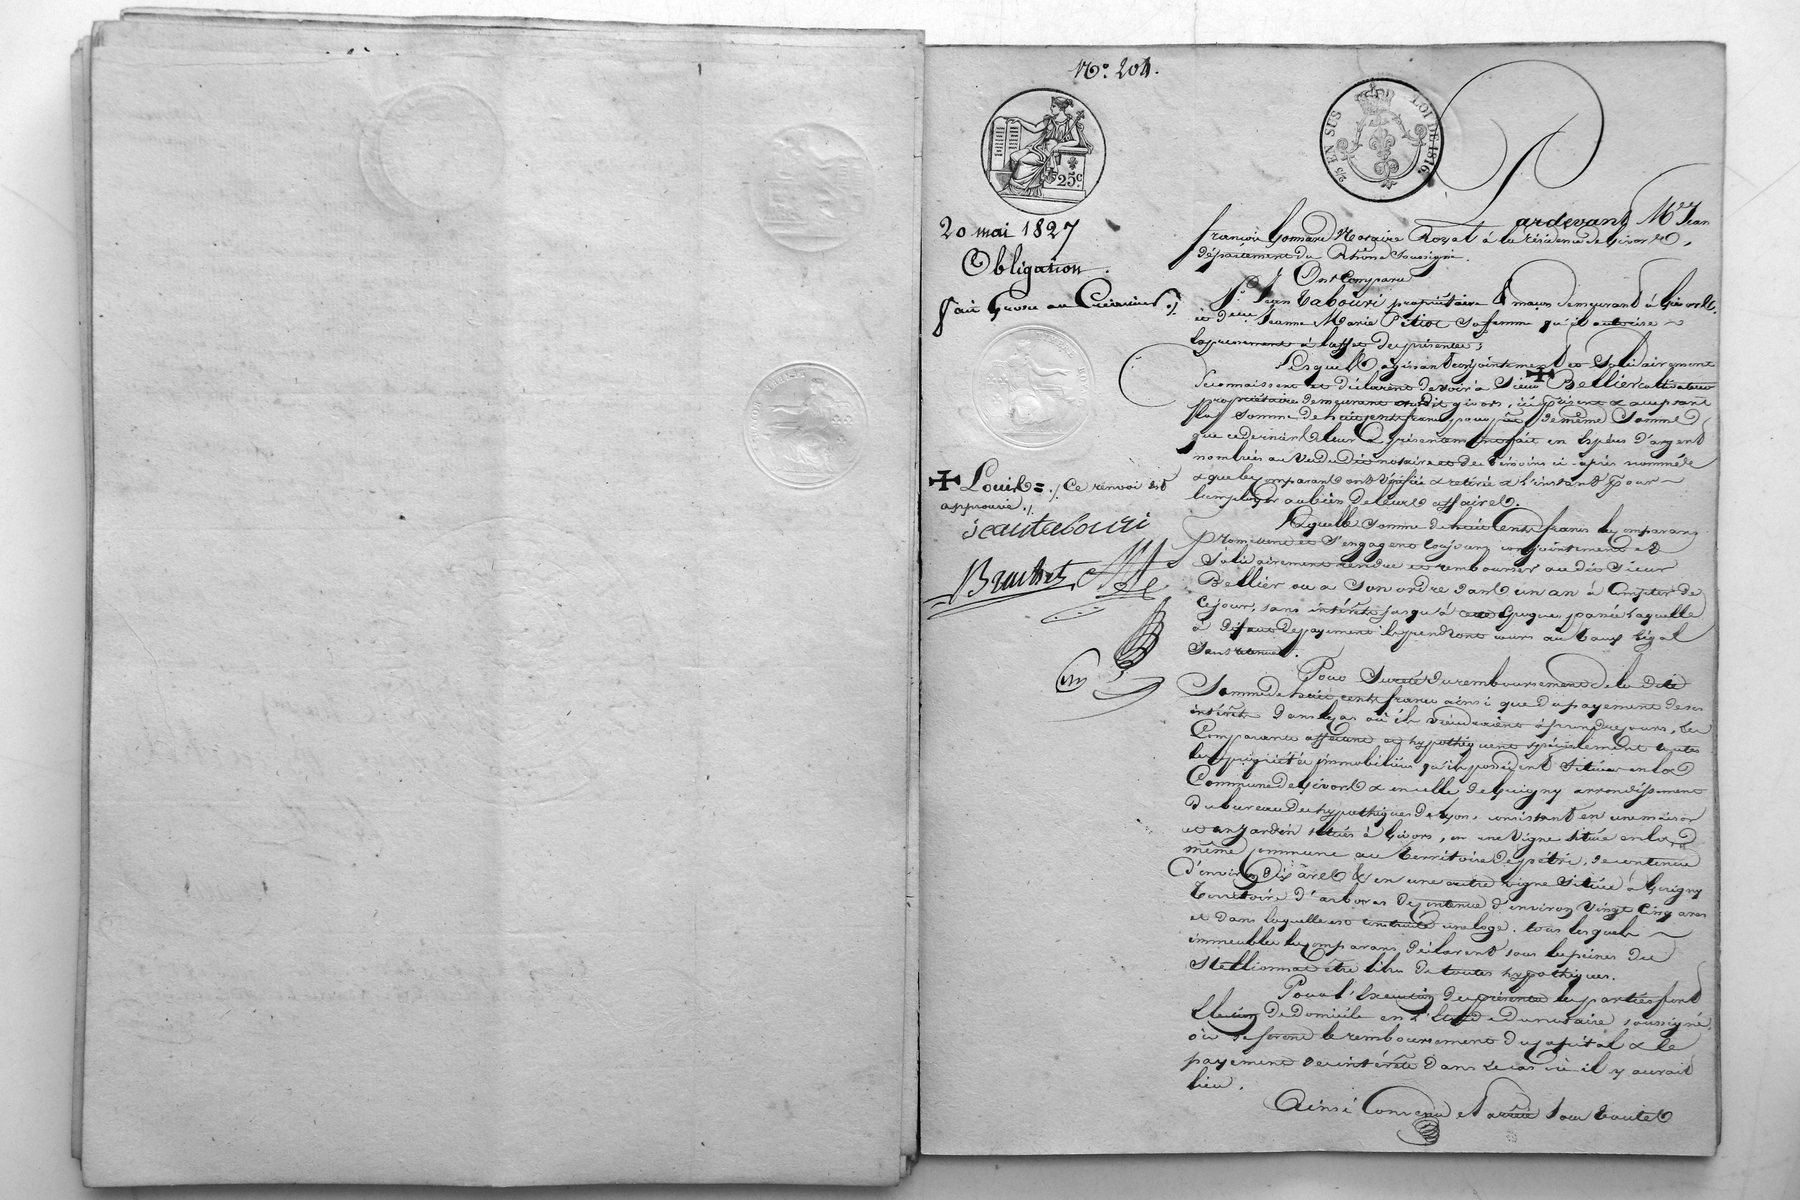 N.º 204.
25 EN SUS
LOI DE 1816
25c.
20 mai 1827
Obligation
fait Grosse au Créancier ./.
Pardevant Me Jean
françois Gonnard Notaire Royal à la résidence de Givors,
département du Rhône soussigné.
Ont Comparu
Sr. Jean Tabouri propriétaire & maçon demeurant à Givors
et dame Jeanne Marie Pitiot sa femme qu'il autorise
expressement à l'effet des présentes;
Lesquels agissant conjointement et solidairement
reconnaissent et déclarent devoir à Sieur ✠ Bellier cultivateur
propriétaire demeurant audit givors, ici présent & acceptant
la somme de huit cents francs pour prêt de même somme
que ce dernier leur a présentement fait en espèces d'argent
nombrées au vu du dit notaire et des témoins ci-après nommés
& que les comparants ont vérifiée & retirée à l'instant pour
l'employer au bien de leurs affaires.
✠ Louis = ./. Ce renvoi est
approuvé ./.
jean tabouri
Laquelle somme de huit cents francs les comparans
promettent et s'engagent toujours conjointement et
solidairement rendre et rembourser au dit Sieur
Bellier ou à son ordre dans un an à compter de
ce jour, sans intérêts jusqu'à cette époque, passée laquelle
à défaut de payement ils prendront cours au taux légal
sans retenue.
Pour sureté du remboursement de la dite
somme de huit cents francs ainsi que du payement des
intérêts dans le cas où ils viendraient à prendre cours, les
Comparants affectent et hypothèquent spécialement toutes
les propriétés immobilières qu'ils possèdent situées en la
Commune de Givors & en celle de Grigny arrondissement
du bureau des hypothèques de Lyon, consistant en une maison
et un jardin situés à Givors, en une vigne située en la
même commune au territoire de pétri, de contenue
d'environ dix ares & en une autre vigne située à Grigny
territoire d'arboras de contenue d'environ vingt cinq ares
et dans laquelle est construite une loge. tous lesquels
immeubles les comparans déclarent sous les peines du
stellionat être libres de toutes hypothèques.
Pour l'exécution des présentes les parties font
Election de domicile en l'étude du notaire soussigné
où se feront le remboursement du capital & le
payement des intérêts dans le cas où il y aurait
lieu.
Ainsi Convenu et arrêté sous toutes